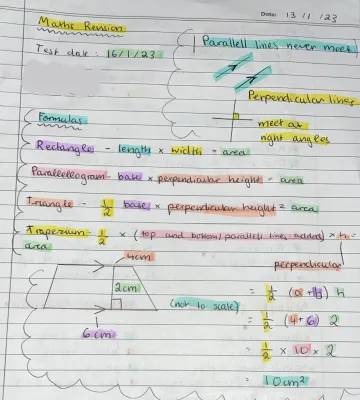 Date: 13/1/23
Maths Revision
Test date: 16/1/23
Parallell lines never meet
Perpendicular lines
meet at
right angles
Formulas
Rectangle - length x width = area
Parallellogram - base x perpendicular height = area
Triangle - 1/2 base x perpendicular height = area
Trapezium - 1/2 x (top and bottom/parallell lines added) x h =
area
perpendicular
4cm
2cm
6cm
(not to scale)
= 1/2 (a+b) h
= 1/2 (4+6) 2
= 1/2 x 10 x 2
= 10cm²